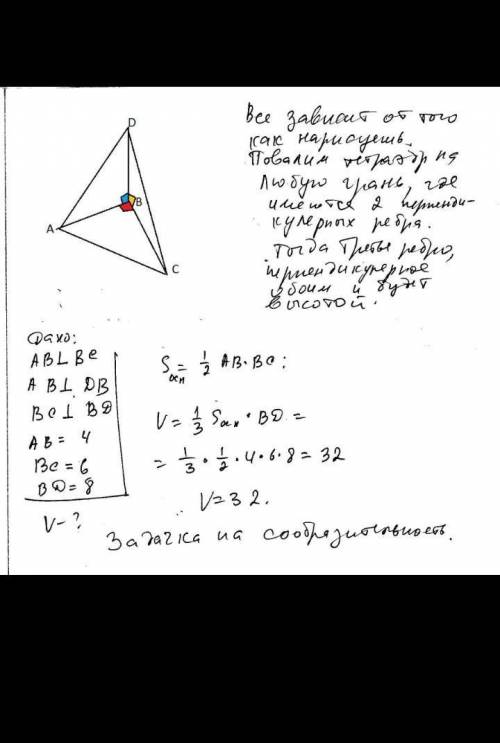 Все зависит от того
как нарисуешь.
Повалим тетраэдр на
любую грань, где
имеются 2 перпенди-
кулярных ребра.
Тогда третье ребро,
перпендикулярное
обоим и будет
высотой.
D
A
B
C
Дано:
AB⊥BC
AB⊥DB
BC⊥BD
AB = 4
BC = 6
BD = 8
V-?
Sосн = 1/2 AB·BC;
V = 1/3 Sосн · BD =
= 1/3 · 1/2 · 4 · 6 · 8 = 32
V = 32.
Задачка на сообразительность.